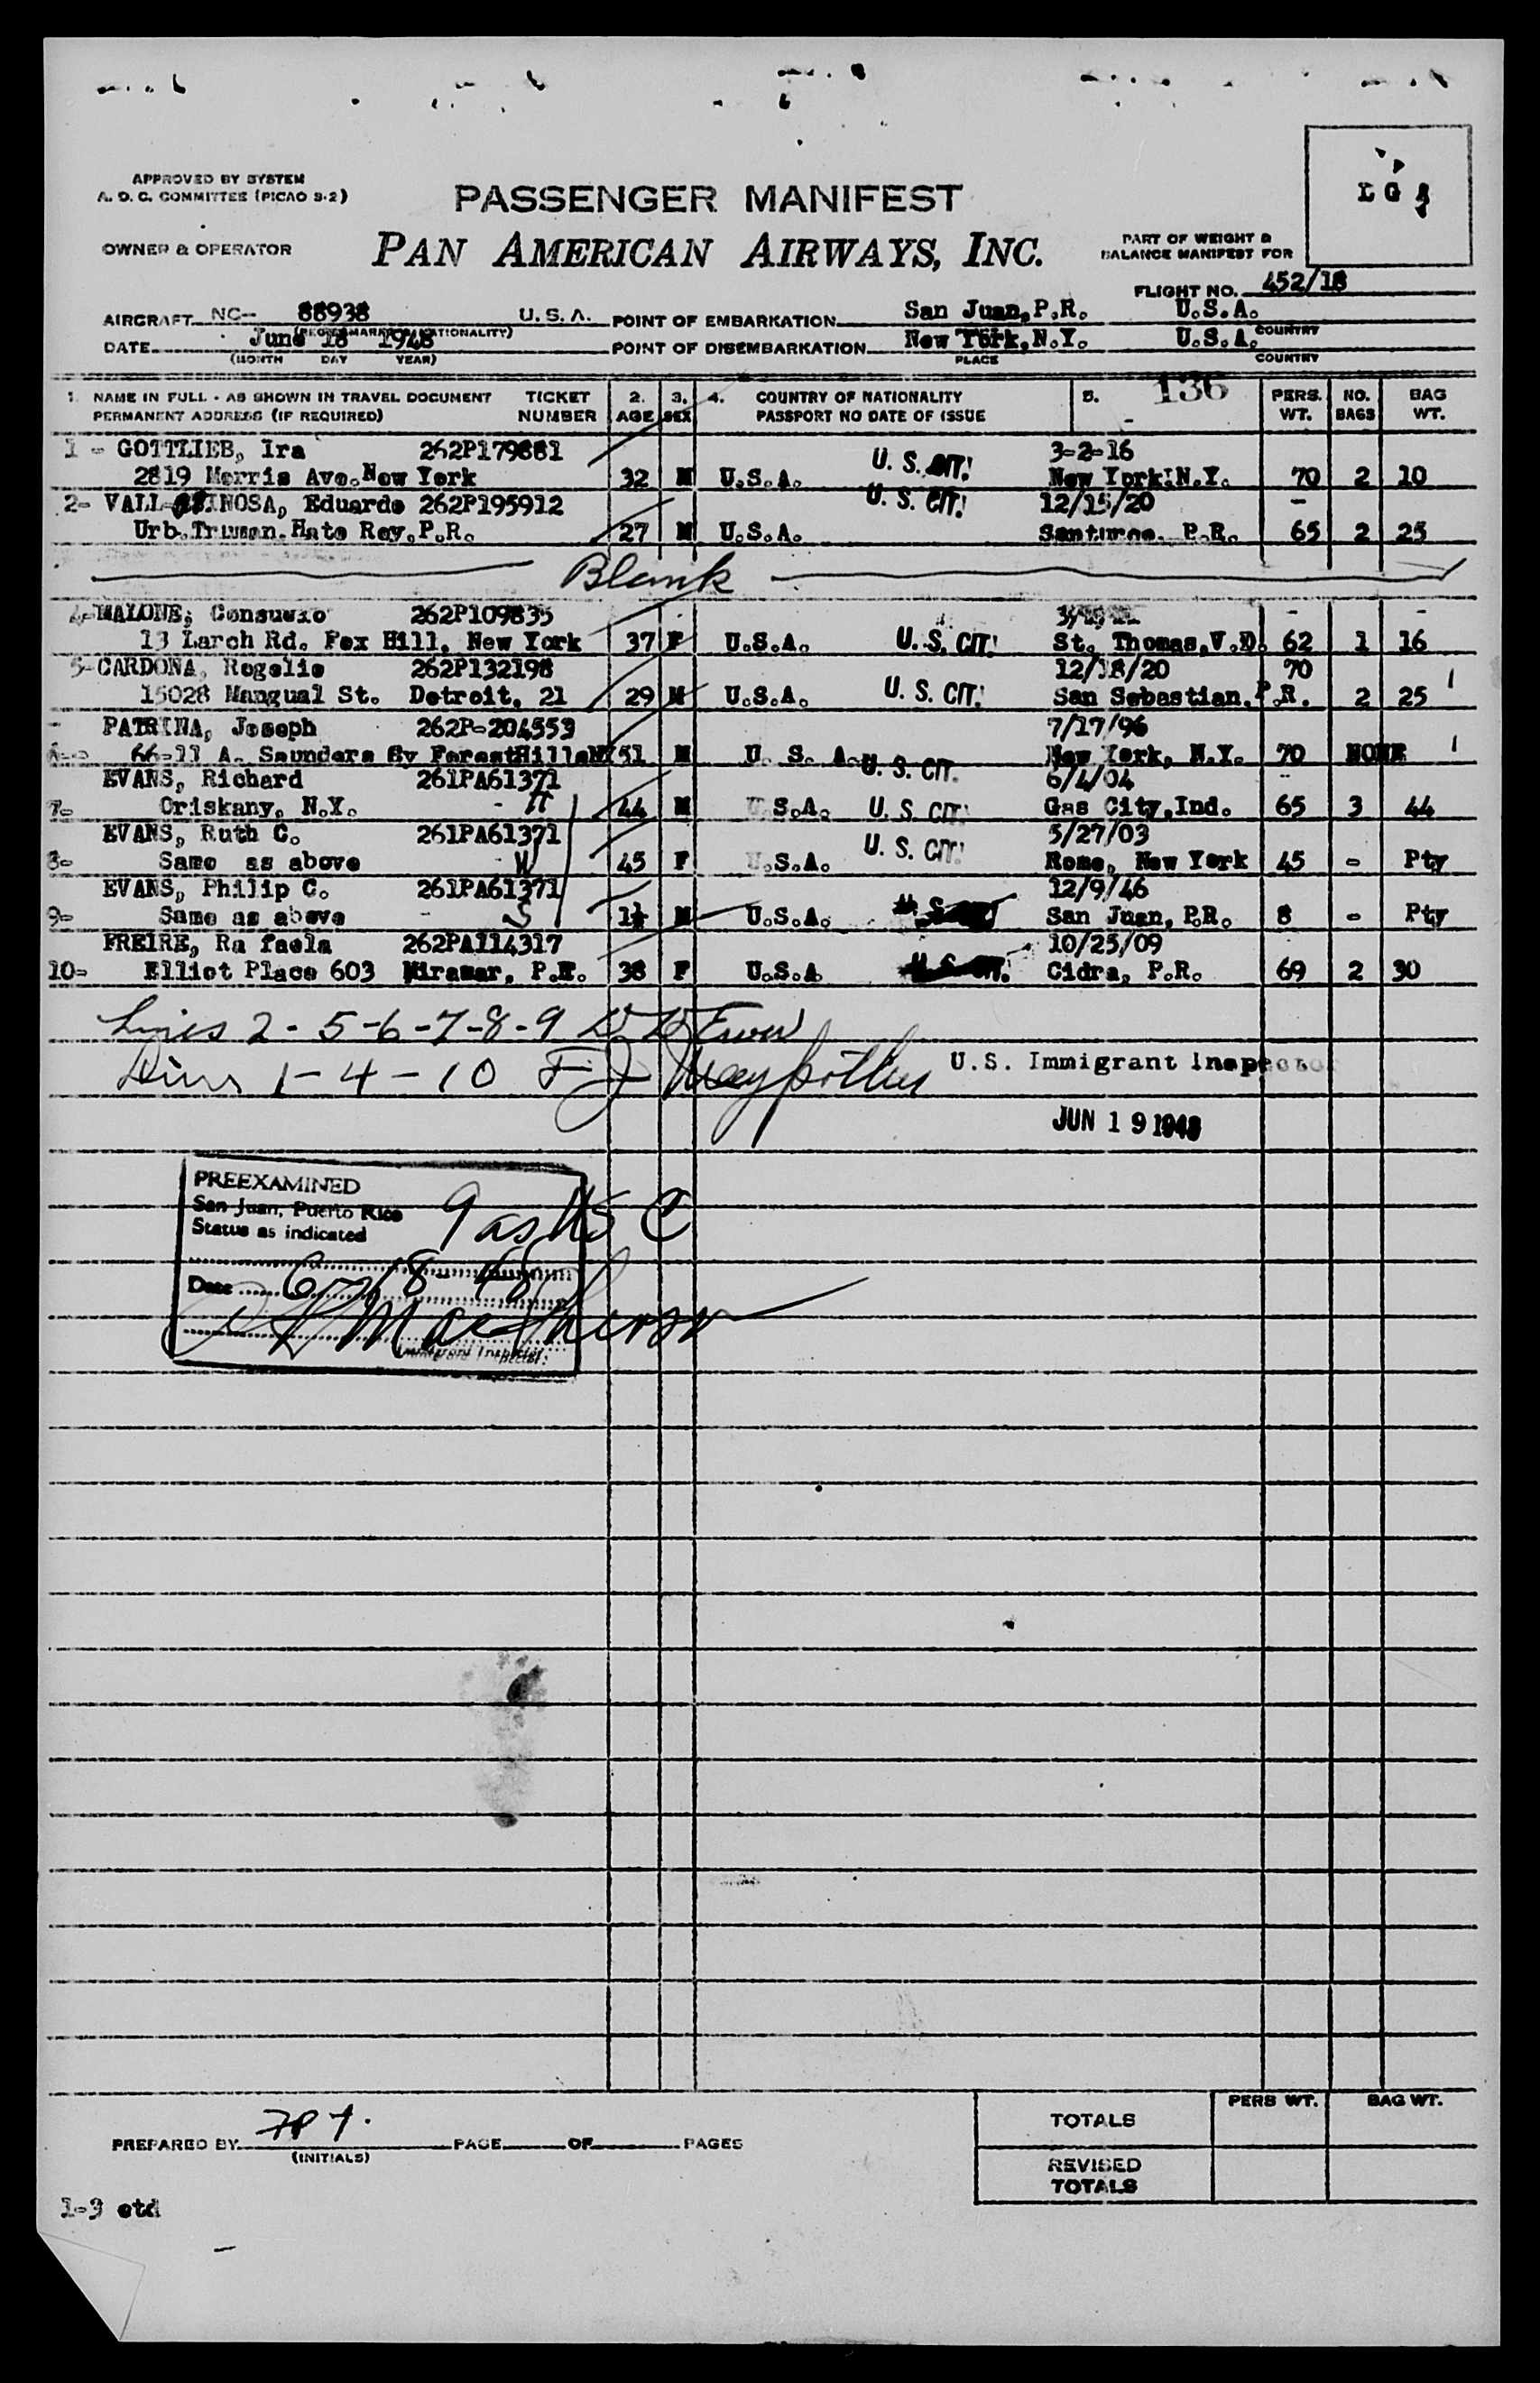 APPROVED BY SYSTEM
A. O. C. COMMITTEE (PICAO S-2)
PASSENGER MANIFEST
L G
OWNER & OPERATOR
PAN AMERICAN AIRWAYS, INC.
PART OF WEIGHT &
BALANCE MANIFEST FOR
FLIGHT NO. 452/18
AIRCRAFT NC- 88938 U.S.A. POINT OF EMBARKATION San Juan,P.R. U.S.A.
COUNTRY
DATE June 18 1948 POINT OF DISEMBARKATION New York,N.Y. U.S.A.
(MONTH DAY YEAR) PLACE COUNTRY
1. NAME IN FULL - AS SHOWN IN TRAVEL DOCUMENT TICKET 2. 3. 4. COUNTRY OF NATIONALITY 5. 136 PERS. NO. BAG
PERMANENT ADDRESS (IF REQUIRED) NUMBER AGE SEX PASSPORT NO DATE OF ISSUE WT. BAGS WT.
1 - GOTTLIEB, Ira 262P179881 3-2-16
2819 Morris Ave.New York 32 M U.S.A. U. S. CIT. New York.N.Y. 70 2 10
2- VALL- Eduardo 262P195912 U. S. CIT. 12/15/20 -
Urb.Truman.Hato Rey.P.R. 27 M U.S.A. Santurce. P.R. 65 2 25
Blank
4-MALONE, Consuelo 262P109835 - -
13 Larch Rd. Fox Hill, New York 37 F U.S.A. U. S. CIT. St. Thomas,V. 62 1 16
5-CARDONA, Rogelio 262P132198 12/18/20 70
15028 Mangual St. Detroit, 21 29 M U.S.A. U. S. CIT. San Sebastian, P.R. 2 25
- PATRINA, Joseph 262P-204553 7/17/96
66-11 A. Saunders Sy ForestHillsNY 51 M U. S. A. U. S. CIT. New York, N.Y. 70 NONE
EVANS, Richard 261PA61371 6/4/04
7- Oriskany, N.Y. - H 44 M U.S.A. U. S. CIT. Gas City,Ind. 65 3 44
EVANS, Ruth C. 261PA61371 5/27/03
8- Same as above - W 45 F U.S.A. U. S. CIT. Rome, New York 45 - Pty
EVANS, Philip C. 261PA61371 12/9/46
9- Same as above - S 1½ M U.S.A. San Juan, P.R. 8 - Pty
FREIRE, Ra faela 262PA114317 10/25/09
10- Elliot Place 603 Miramar, P.R. 38 F U.S.A Cidra, P.R. 69 2 30
Lines 2 - 5 - 6 - 7 - 8 - 9
1 - 4 - 10 F J
U.S. Immigrant Inspector
JUN 19 1948
PREEXAMINED
San Juan, Puerto Rico
Status as indicated
9 as US C
Date 6-18-48
Immigrant Inspector
PREPARED BY PAGE OF PAGES
(INITIALS)
TOTALS PERS WT. BAG WT.
REVISED
TOTALS
1-9 otd